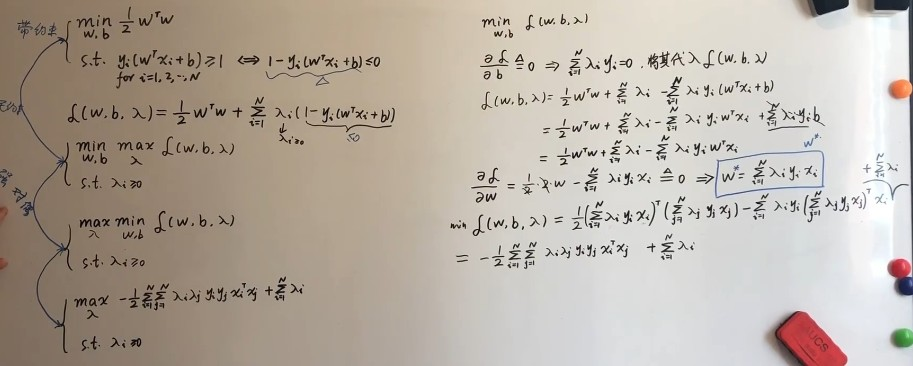 带约束
min 1/2 wᵀw
w,b
s.t. yᵢ(wᵀxᵢ+b)≥1 ⇔ 1-yᵢ(wᵀxᵢ+b)≤0
for i=1,2,...,N
△
ℒ(w,b,λ)=1/2 wᵀw + Σᵢ₌₁ᴺ λᵢ(1-yᵢ(wᵀxᵢ+b))
λᵢ≥0
≤0
min max ℒ(w,b,λ)
w,b λ
s.t. λᵢ≥0
对偶
max min ℒ(w,b,λ)
λ w,b
s.t. λᵢ≥0
max -1/2 Σᵢ₌₁ᴺ Σⱼ₌₁ᴺ λᵢλⱼyᵢyⱼxᵢᵀxⱼ + Σᵢ₌₁ᴺ λᵢ
λ
s.t. λᵢ≥0
min ℒ(w,b,λ)
w,b
∂ℒ/∂b ≜ 0 ⇒ Σᵢ₌₁ᴺ λᵢyᵢ=0. 将其代入ℒ(w,b,λ)
ℒ(w,b,λ)= 1/2 wᵀw + Σᵢ₌₁ᴺ λᵢ - Σᵢ₌₁ᴺ λᵢyᵢ(wᵀxᵢ+b)
= 1/2 wᵀw + Σᵢ₌₁ᴺ λᵢ - Σᵢ₌₁ᴺ λᵢyᵢwᵀxᵢ + Σᵢ₌₁ᴺ λᵢyᵢb
= 1/2 wᵀw + Σᵢ₌₁ᴺ λᵢ - Σᵢ₌₁ᴺ λᵢyᵢwᵀxᵢ
w*
∂ℒ/∂w = 1/2·2·w - Σᵢ₌₁ᴺ λᵢyᵢxᵢ ≜ 0 ⇒ w*=Σᵢ₌₁ᴺ λᵢyᵢxᵢ
+Σᵢ₌₁ᴺ λᵢ
min ℒ(w,b,λ) = 1/2(Σᵢ₌₁ᴺ λᵢyᵢxᵢ)ᵀ(Σⱼ₌₁ᴺ λⱼyⱼxⱼ) - Σᵢ₌₁ᴺ λᵢyᵢ(Σⱼ₌₁ᴺ λⱼyⱼxⱼ)ᵀxᵢ
= -1/2 Σᵢ₌₁ᴺ Σⱼ₌₁ᴺ λᵢλⱼyᵢyⱼxᵢᵀxⱼ + Σᵢ₌₁ᴺ λᵢ